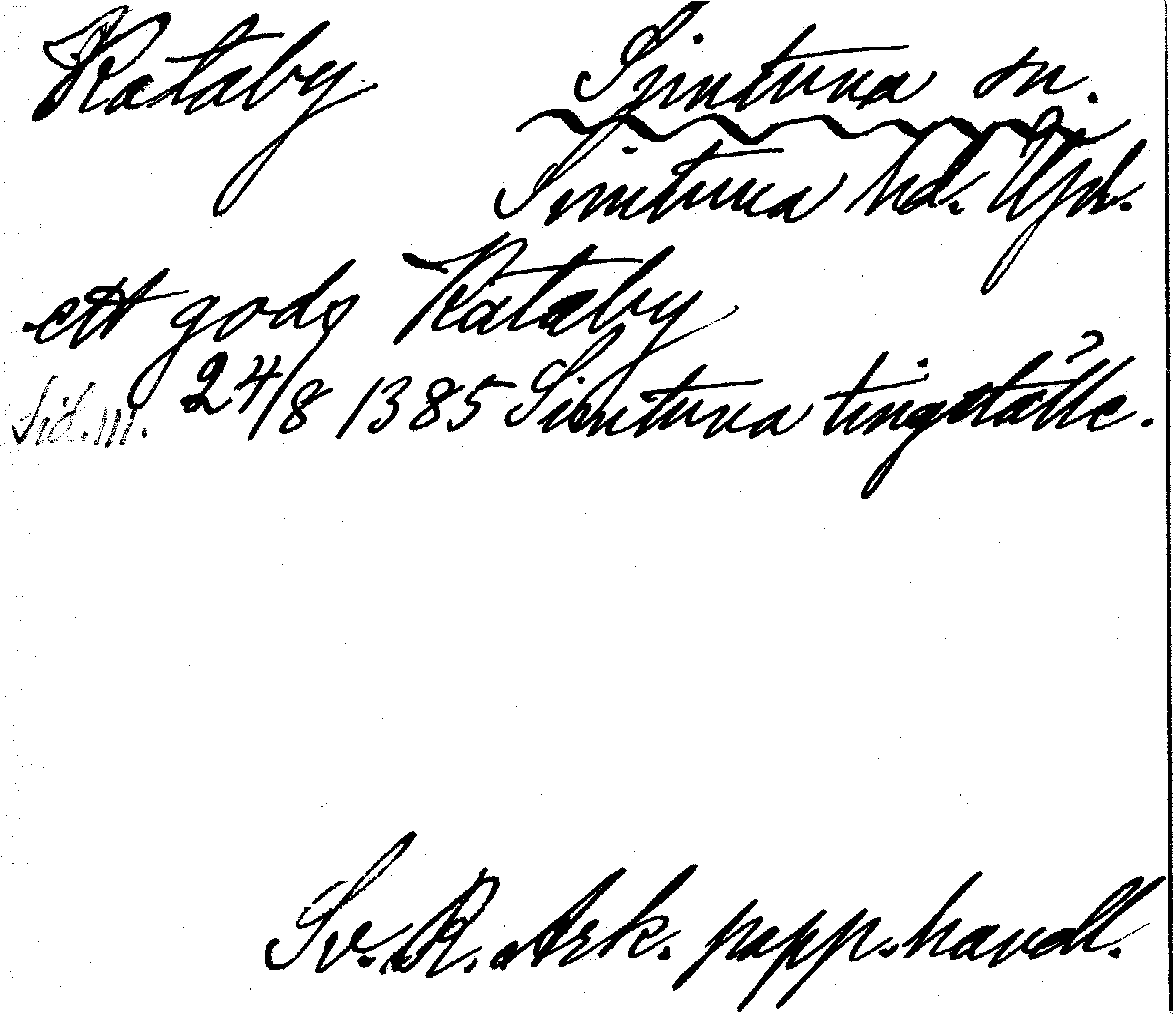 Rataby Simtuna sn.
Simtuna hd. Upl.
ett gods Rataby
Sid.m. 24/8 1385 Simtuna tingställe.
Sv. R. Ark. papp.handl.